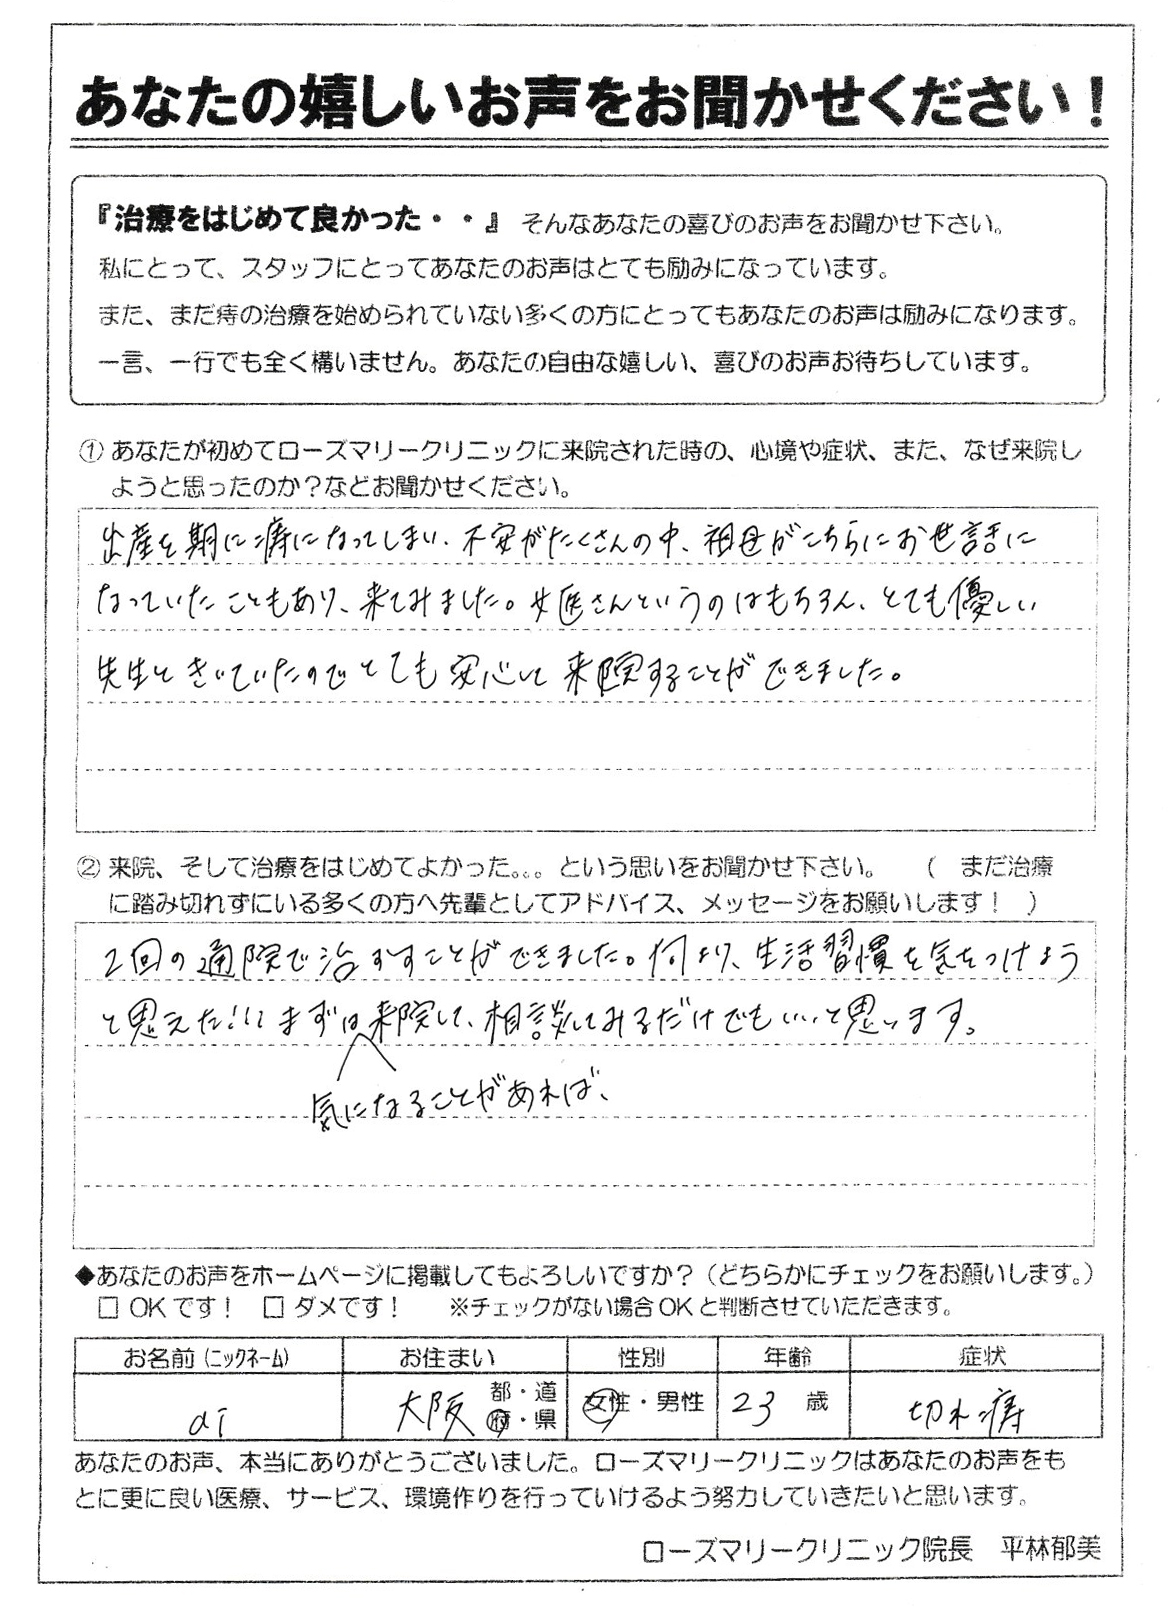 あなたの嬉しいお声をお聞かせください！
『治療をはじめて良かった・・』そんなあなたの喜びのお声をお聞かせ下さい。
私にとって、スタッフにとってあなたのお声はとても励みになっています。
また、まだ痔の治療を始められていない多くの方にとってもあなたのお声は励みになります。
一言、一行でも全く構いません。あなたの自由な嬉しい、喜びのお声お待ちしています。
① あなたが初めてローズマリークリニックに来院された時の、心境や症状、また、なぜ来院し
ようと思ったのか？などお聞かせください。
出産を期に痔になってしまい、不安がたくさんの中、祖母がこちらにお世話に
なっていたこともあり、来てみました。女医さんというのはもちろん、とても優しい
先生ときいていたのでとても安心して来院することができました。
② 来院、そして治療をはじめてよかった。。。という思いをお聞かせ下さい。　（　まだ治療
に踏み切れずにいる多くの方へ先輩としてアドバイス、メッセージをお願いします！　）
2回の通院で治すことができました。何より、生活習慣を気をつけよう
と思えた!!! まずは来院して、相談してみるだけでもいいと思います。
気になることがあれば、
◆あなたのお声をホームページに掲載してもよろしいですか？（どちらかにチェックをお願いします。）
□ OKです！　□ ダメです！　※チェックがない場合OKと判断させていただきます。
お名前（ニックネーム）　お住まい　性別　年齢　症状
ai　大阪 都・道　女性・男性　23 歳　切れ痔
府・県
あなたのお声、本当にありがとうございました。ローズマリークリニックはあなたのお声をも
とに更に良い医療、サービス、環境作りを行っていけるよう努力していきたいと思います。
ローズマリークリニック院長　平林郁美